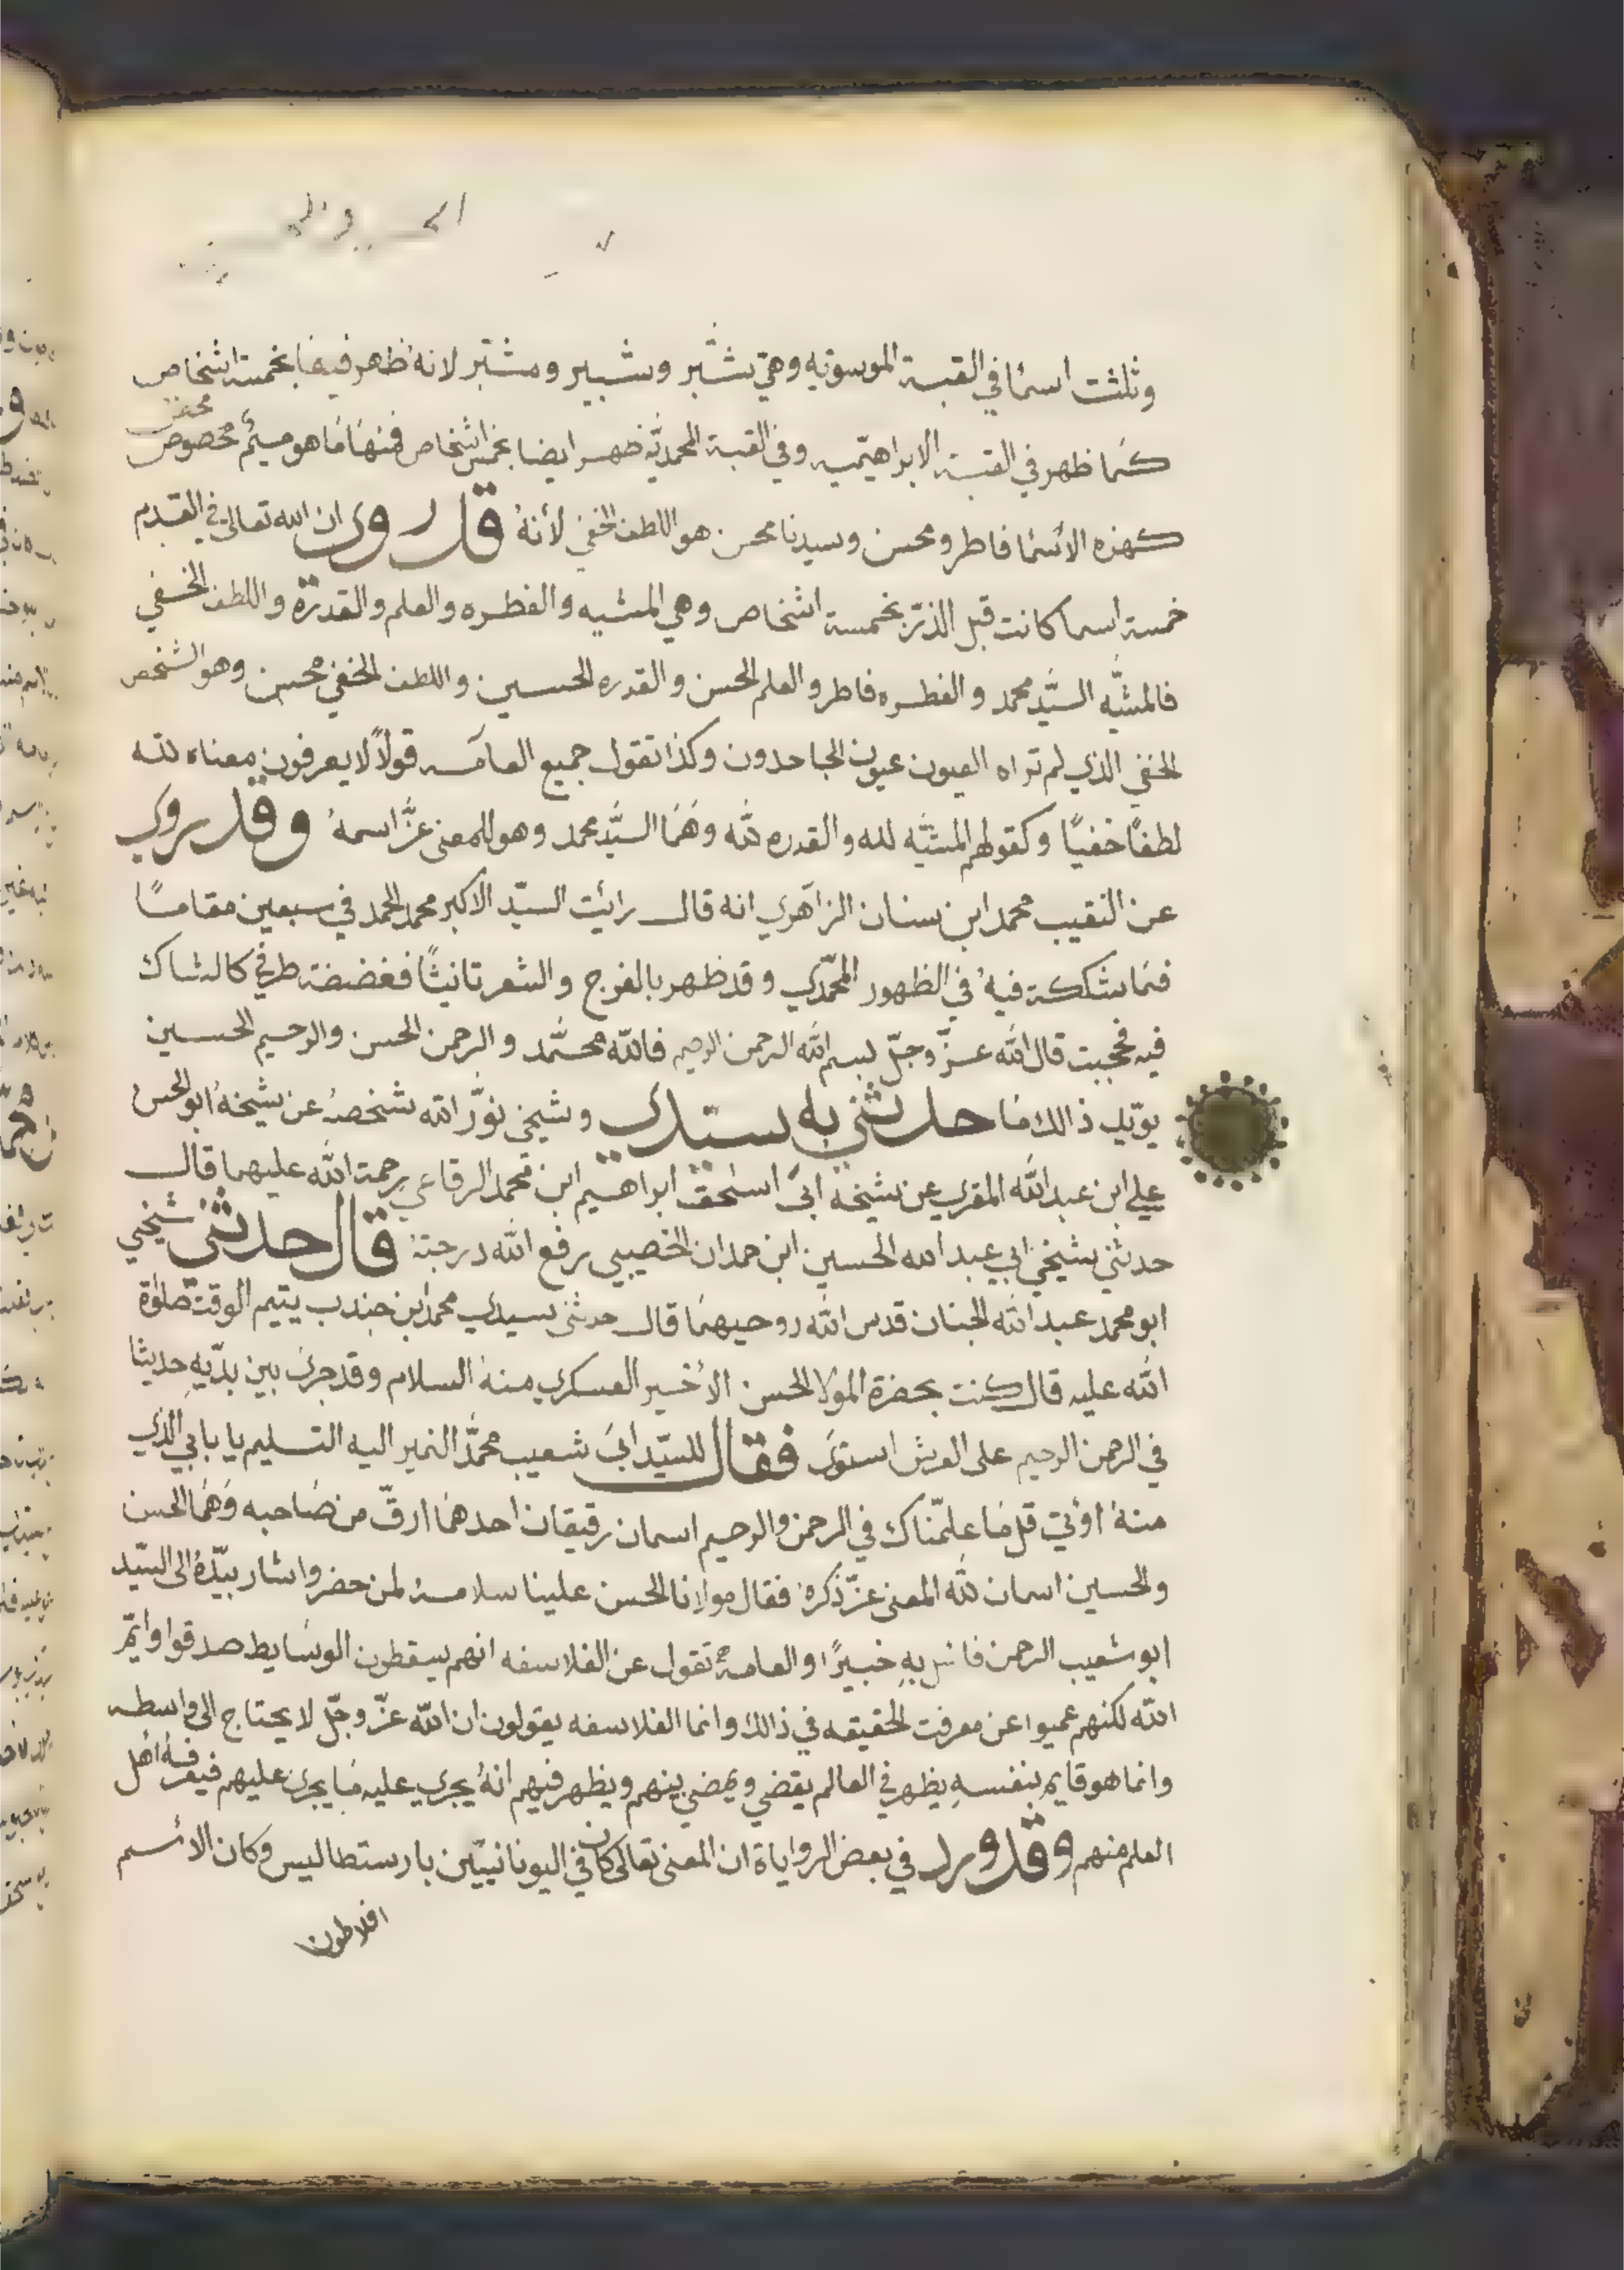 وثلثت اسمًا في القبة الموسويه وهي شبّر وشبير ومشبّر لانه ظهر فيها بخمسة اشخاص
كما ظهر في القبة الابراهيميه وفي القبة المحمديّه ظهر ايضا بخمس اشخاص فمنها ما هو ميمٌ مخصوص
كهذه الأسما فاطر ومحسن وسيدنا محسن هو اللطف الخفي لأنهُ قد روي ان الله تعالى في القدم
خمسة اسما كانت قبل الذرّ بخمسة اشخاص وهي المشيه والفطره والعلم والقدرة واللطف الخفي
فالمشيّه السيّد محمد والفطره فاطر والعلم الحسن والقدره الحسين واللطف الخفي محسن وهو الشخص
الخفي الذي لم تراه العيون عيون الجاحدون وكذا تقول جميع العامه قولًا لا يعرفون معناه لله
لطفًا خفيًا وكقولهم المشيّه لله والقدره لله وهُمَا السيّد محمد وهو للمعنى عزّ اسمهُ وقد روي
عن النقيب محمد ابن سنان الزاهري انه قال رأيت السيّد الاكبر محمد الحمد في سبعين مقامًا
فما شككة فيهُ في الظهور المحمّدي وقد ظهر بالفرج والشعر تانيثًا فغضضة طرفي كالشاك
فيه فحجبت قال الله عزّ وجلّ لبسم الله الرحمن الرحيم فالله محمّد والرحمن الحسن والرحيم الحسين
يويّد ذالك ما حدثني به سيّدي وشيخي نوّر الله شخصهُ عن شيخهُ ابو الحسن
علي ابن عبد الله المقري عن شيخه ابي اسحق ابراهيم ابن محمد الرقاعي رحمة الله عليهما قال
حدثني شيخي ابي عبد الله الحسين ابن حمدان الخصيبي رفع الله درجتهُ قال حدثني شيخي
ابو محمد عبد الله الجنان قدس الله روحيهما قال حدثني سيدي محمد ابن جندب يتيم الوقت صلوٰة
الله عليه قال كنت بحضرة المولا الحسن الأخير العسكري منهُ السلام وقد جرى بين يدّيهِ حديثا
في الرحمن الرحيم على العرش استوى فقال للسيّد ابي شعيب محمّد النمير اليه التسليم يا بابي الذي
منهُ اؤتي قل ما علّمناك في الرحمن والرحيم اسمان رقيقان احدهما ارقّ من صاحبه وهُمَا الحسن
والحسين اسمان لله المعنى عزّ ذكرهُ فقال مولانا الحسن علينا سلامهُ لمن حضر واشار بيّدهُ الى السيّد
ابو شعيب الرحمن فاسئل بهِ خبيرًا والعامة تقول عن الفلاسفه انهم يسقطون الوسايط صدقوا وايّم
الله لكنهم عميوا عن معرفت الحقيقه في ذالك وانما الفلاسفه يقولون ان الله عزّ وجلّ لا يحتاج الى واسطه
وانما هو قايم بنفسهِ يظهر في العالم يقضي ويمضي بينهم ويظهر فيهم انهُ يجري عليه ما يجري عليهم فيعرفهُ اهل
العلم منهم وقد ورد في بعض الرواياة ان المعنى تعالى كان في اليونانييّن بارستطاليس وكان الأسم
افلاطون